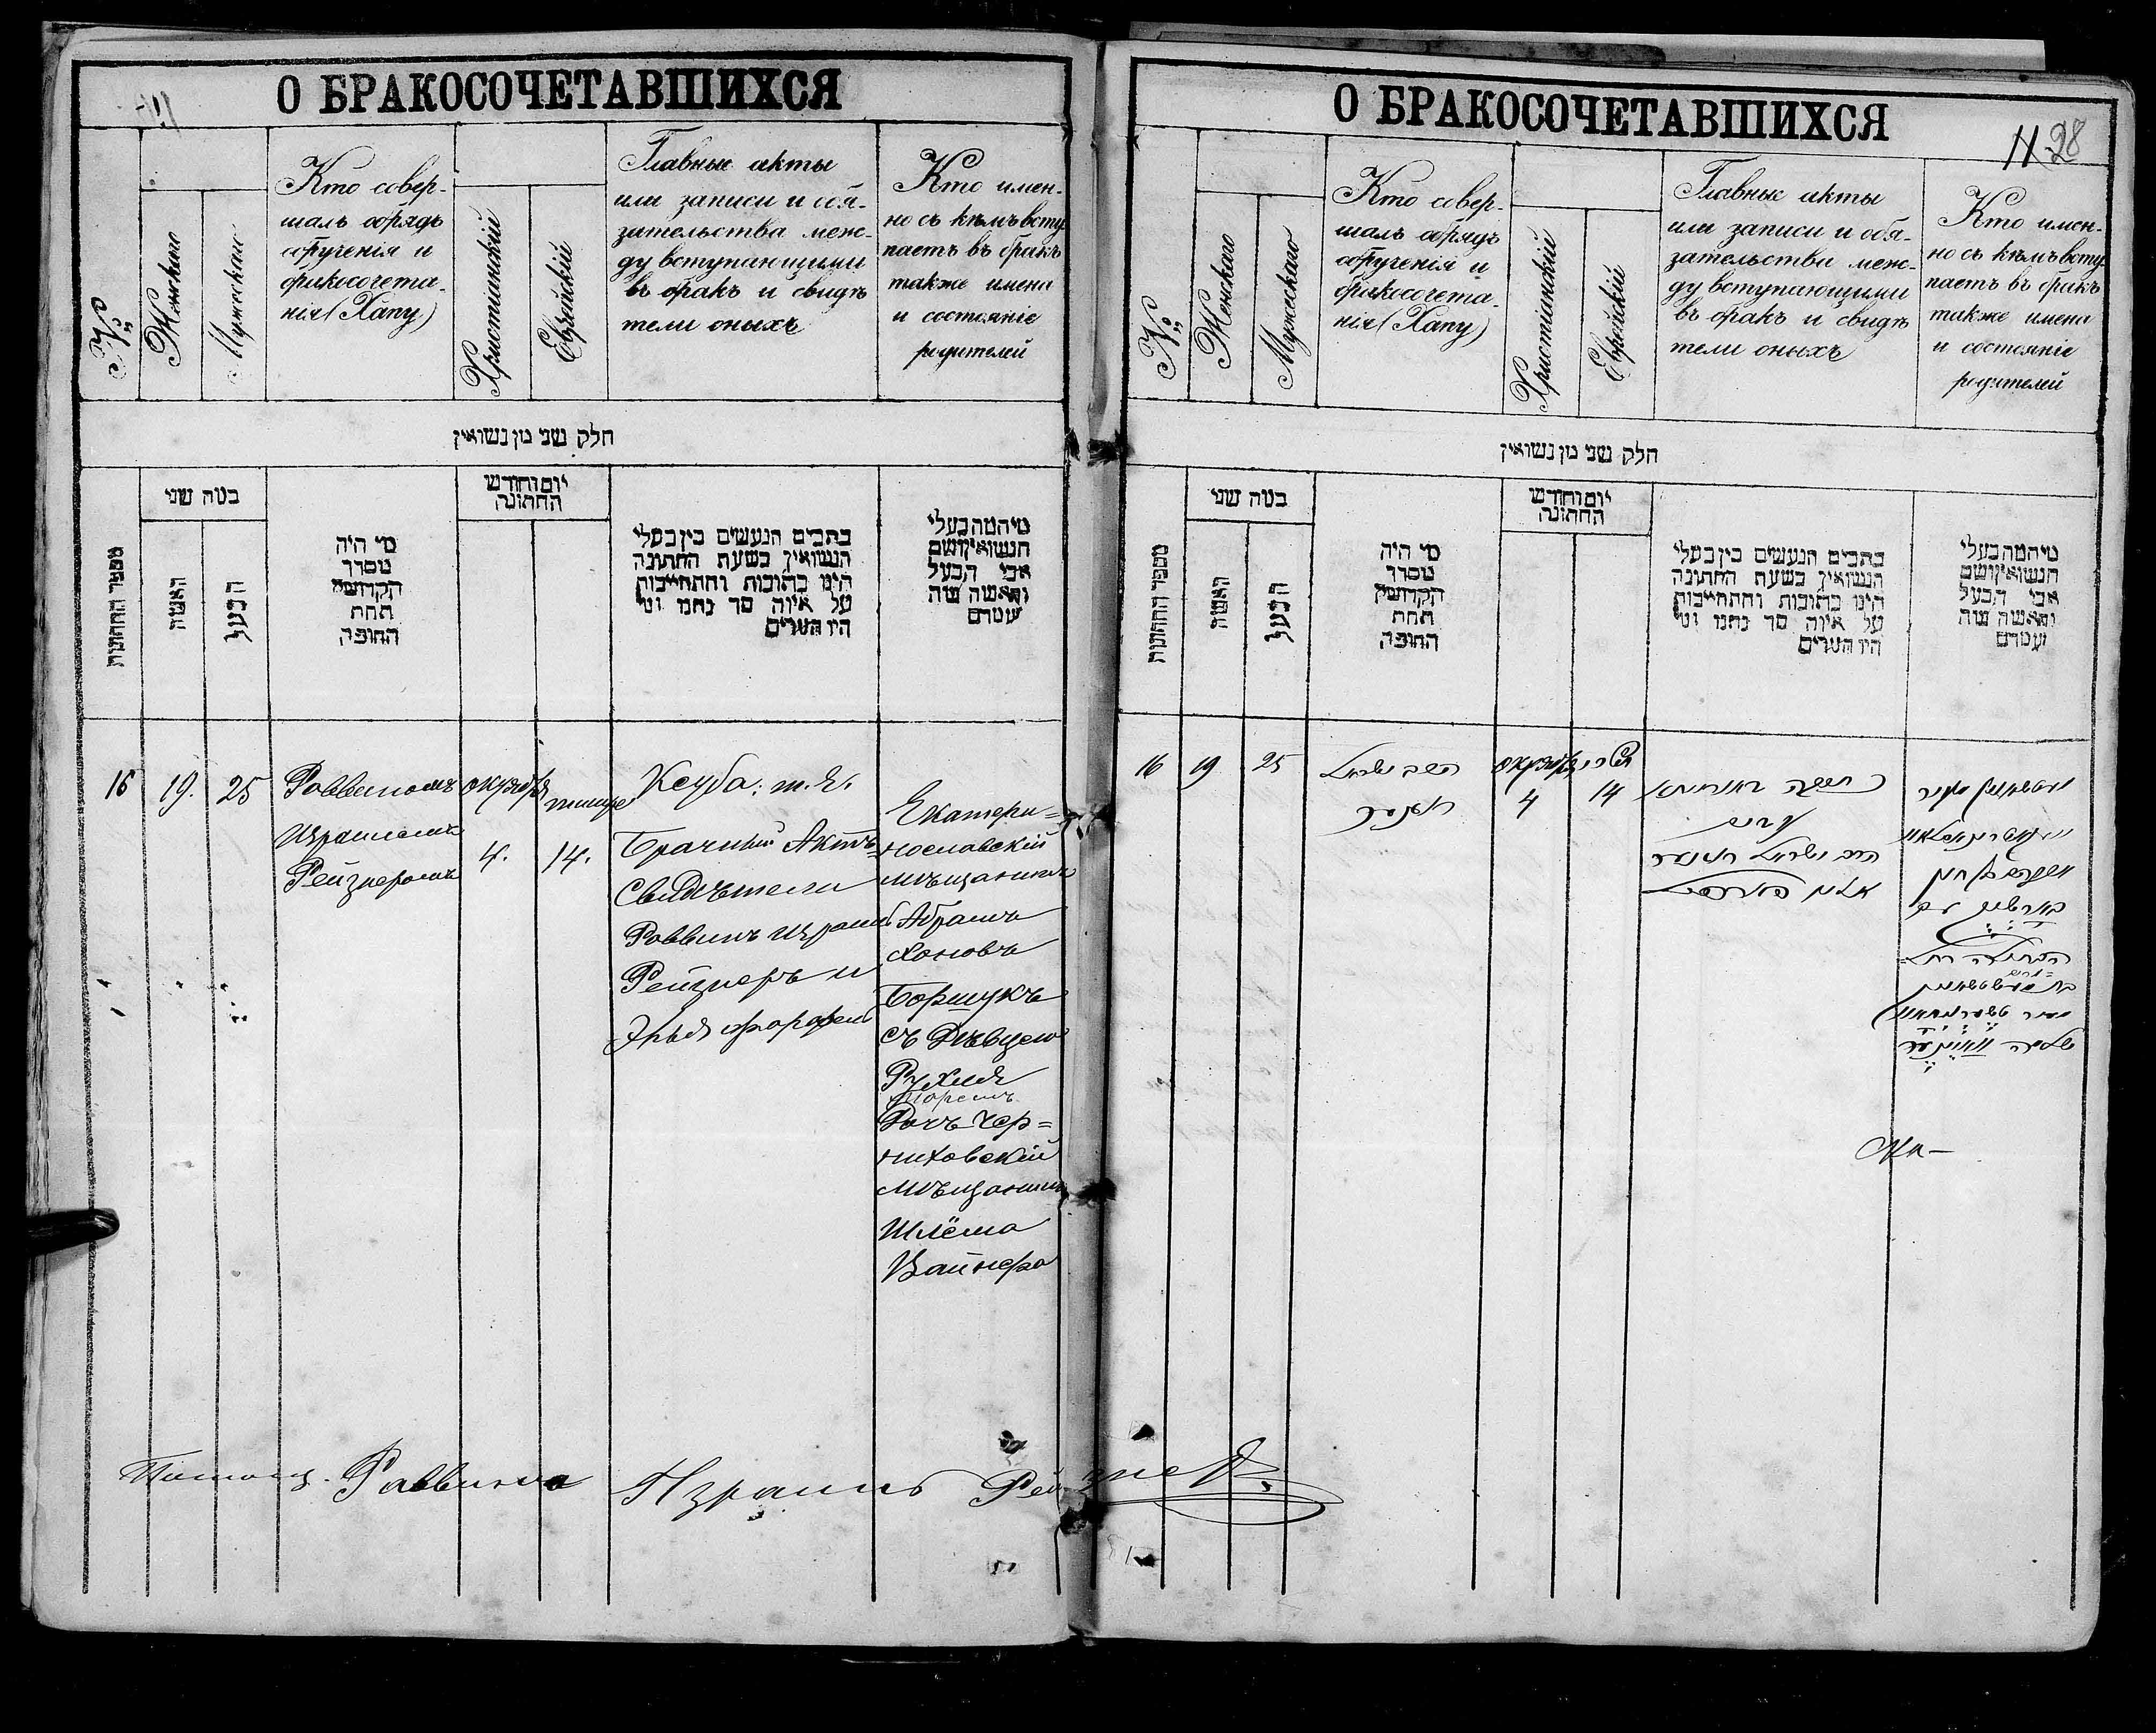 О БРАКОСОЧЕТАВШИХСЯ
№
Женскаго
Мужескаго
Кто совер-
шалъ обрядъ
обрученія и
бракосочета-
нія (Хапу)
Христіанскій
Еврейскій
Главные акты
или записи и обя-
зательства меж-
ду вступающими
въ бракъ и свидѣ
тели оныхъ
Кто имен-
но съ кѣмъ всту-
паетъ въ бракъ
также имена
и состояніе
родителей
חלק שני מן נשואין
מספר החתונות
כמה שני
האשה
הבעל
מי היה
מסדר
הקדושין
תחת
החופה
יום וחודש
החתונה
כתבים הנעשים בין בעלי
הנשואין בשעת החתונה
היינו כתובות והתחייבות
על איזה סך נתנו ומי
היו העדים
מי המה בעלי
הנשואין ושם
אבי הבעל
והאשה מה
עמדם
16
19.
25
Раввиномъ
Израилемъ
Рейзнеромъ
октября
4.
тишре
14.
Ксуба: т. е.
Брачный Актъ
Свидѣтели
Раввинъ Израиль
Рейзнеръ и
Екатери=
нославскій
мѣщанинъ
Абрамъ
Хоновъ
Боршукъ
съ Дѣвицею
Рухля
Дочь Чер=
ниховскій
мѣщанинъ
Шлёма
Вайнера
Помощ. Раввина Израиль Рейзнеръ
О БРАКОСОЧЕТАВШИХСЯ
11 28
№
Женскаго
Мужескаго
Кто совер-
шалъ обрядъ
обрученія и
бракосочета-
нія (Хапу)
Христіанскій
Еврейскій
Главные акты
или записи и обя-
зательства меж-
ду вступающими
въ бракъ и свидѣ
тели оныхъ
Кто имен-
но съ кѣмъ всту-
паетъ въ бракъ
также имена
и состояніе
родителей
חלק שני מן נשואין
מספר החתונות
כמה שני
האשה
הבעל
מי היה
מסדר
הקדושין
תחת
החופה
יום וחודש
החתונה
כתבים הנעשים בין בעלי
הנשואין בשעת החתונה
היינו כתובות והתחייבות
על איזה סך נתנו ומי
היו העדים
מי המה בעלי
הנשואין ושם
אבי הבעל
והאשה מה
עמדם
16
19
25
הרב ישראל
רייזנער
октября
4
תשרי
14
הרב ישראל רייזנער